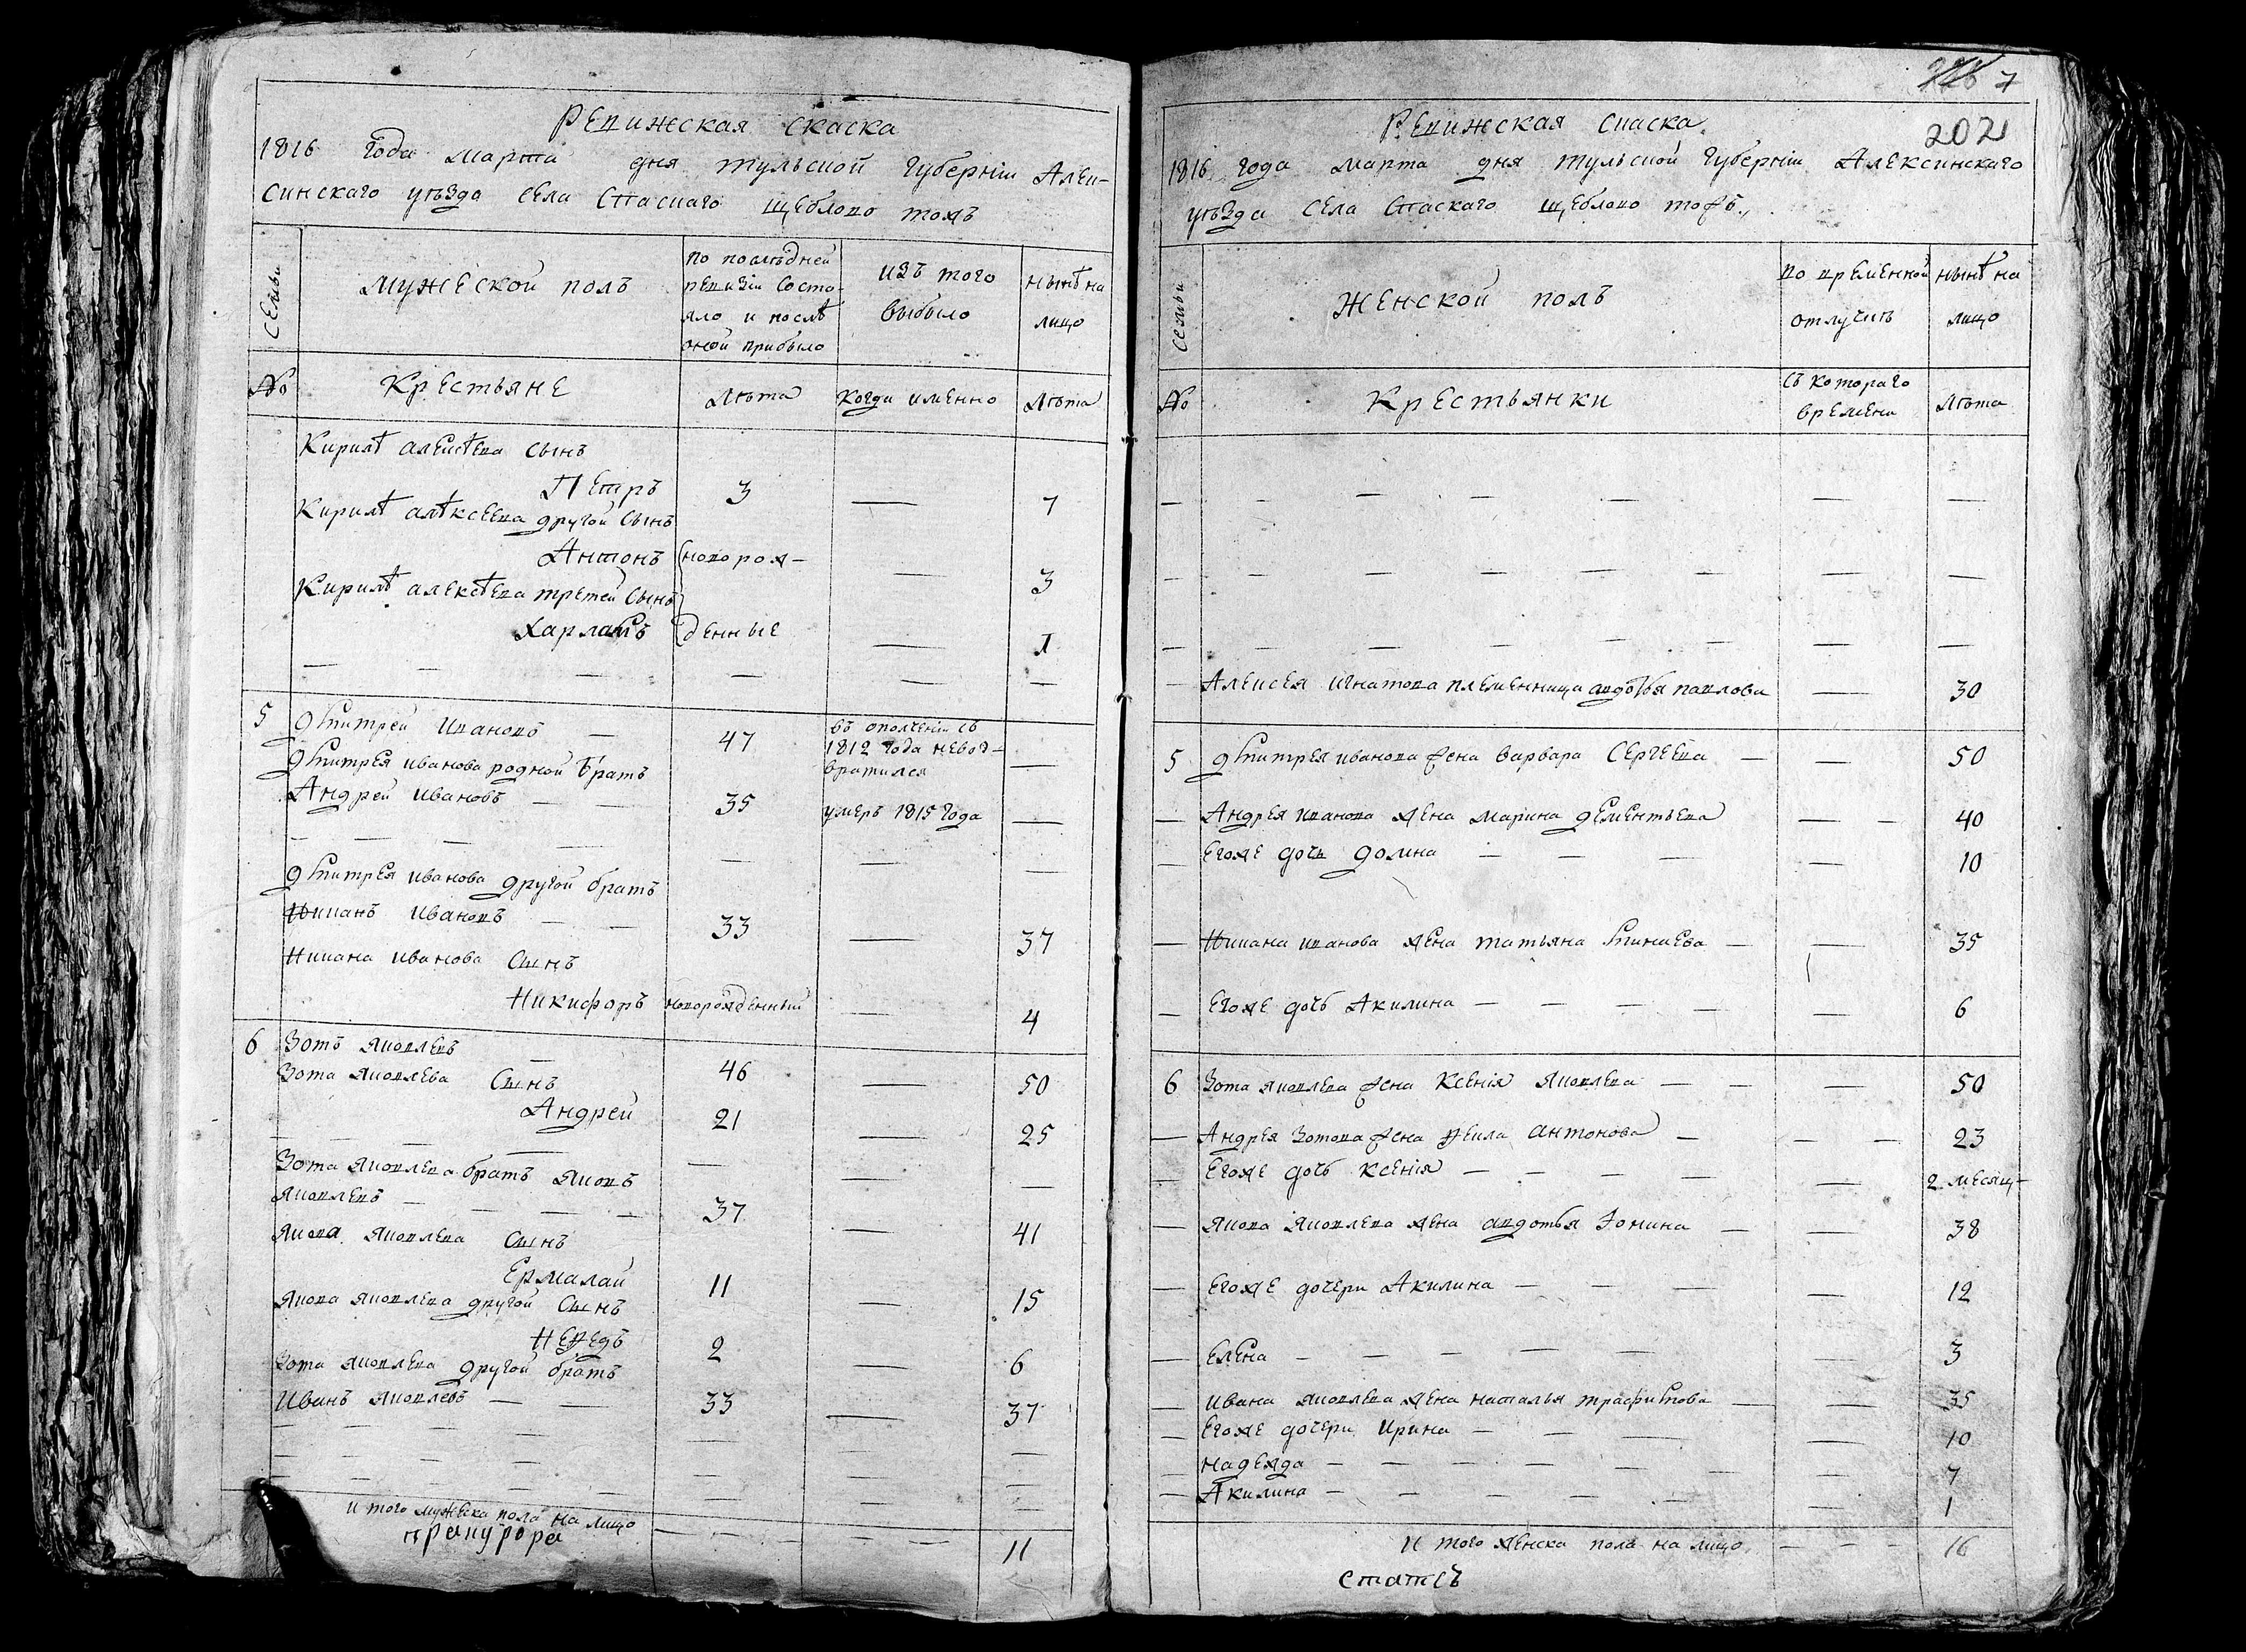 Ревижская скаска
1816 года марта дня тульской губерніи Алек-
синскаго уѣзда села Спаскаго щеблово тожъ
Семьи
мужеской полъ
по послѣдней
ревизіи состо-
яло и послѣ
оной прибыло
изъ того
выбыло
нынѣ на
лицо
№
Крестьяне
лѣта
когда именно
лѣта
Кирилѣ алексѣева сынъ
Петръ 3 — 7
Кирилѣ алѣксеева другой сынъ
Антонъ новорож- — 3
Кирилѣ алексѣева третей сынъ
Харламъ денные — 1
— — — — — —
5 дмитрей ивановъ — 47 въ ополченіи съ
1812 года невоз-
вратился —
дмитрея иванова родной братъ —
Андрей ивановъ — — 35 умеръ 1815 года —
— — — — — — —
дмитрея иванова другой братъ
Никанъ ивановъ — — 33 — 37
Никана иванова сынъ
Никифоръ новорожденный — 4
6 Зотъ яковлевъ — 46 — 50
Зота яковлева сынъ
Андрей 21 — 25
— — — — — — —
Зота яковлева братъ яковъ
яковлевъ — — — — 37 — 41
якова яковлева сынъ
Ермалай 11 — 15
якова яковлева другой сынъ
Нефедъ 2 — 6
Зота яковлева другой братъ
Иванъ яковлевъ — — 33 — 37
— — — — — — —
— — — — — — —
И того мужеска пола на лицо — — — — — — 11
прапурора
7
202
Ревижская скаска
1816 года марта дня тульской губерніи Алексинскаго
уѣзда села Спаскаго щеблово тожъ.,
семьи
Женской полъ
во временной
отлучкѣ
нынѣ на
лицо
№
Крестьянки
съ котораго
времени
лѣта
— — — — — — —
— — — — — — — —
— — — — — — — —
— Алексея игнатова племенница авдотья павлова — 30
5 дмитрея иванова жена варвара Сергеева — — 50
— Андрея иванова жена марина дементьева — — 40
— егоже дочь домна — — — — 10
— Никана иванова жена татьяна минаева — — 35
— егоже дочь Акилина — — — — — 6
6 Зота яковлева жена Ксенія яковлева — — — 50
— Андрея Зотова жена фекла антонова — — — 23
— Егоже дочь Ксенія — — — — — — 2 месяц-
— якова яковлева жена авдотья Фомина — — 38
— Егоже дочери Акилина — — — — 12
— Елена — — — — — — — 3
— ивана яковлева жена наталья трафимова — — 35
— Егоже дочери Ирина — — — — 10
— надежда — — — — — — — — 7
— Акилина — — — — — — 1
И того женска пола на лицо — — — 16
статсъ